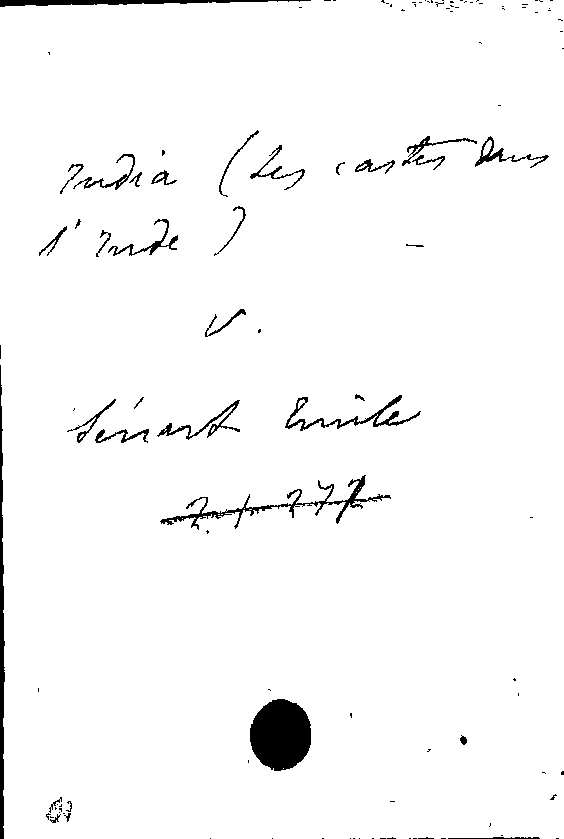 India (Les castes dans
l'Inde)
v.
Sénart Emile